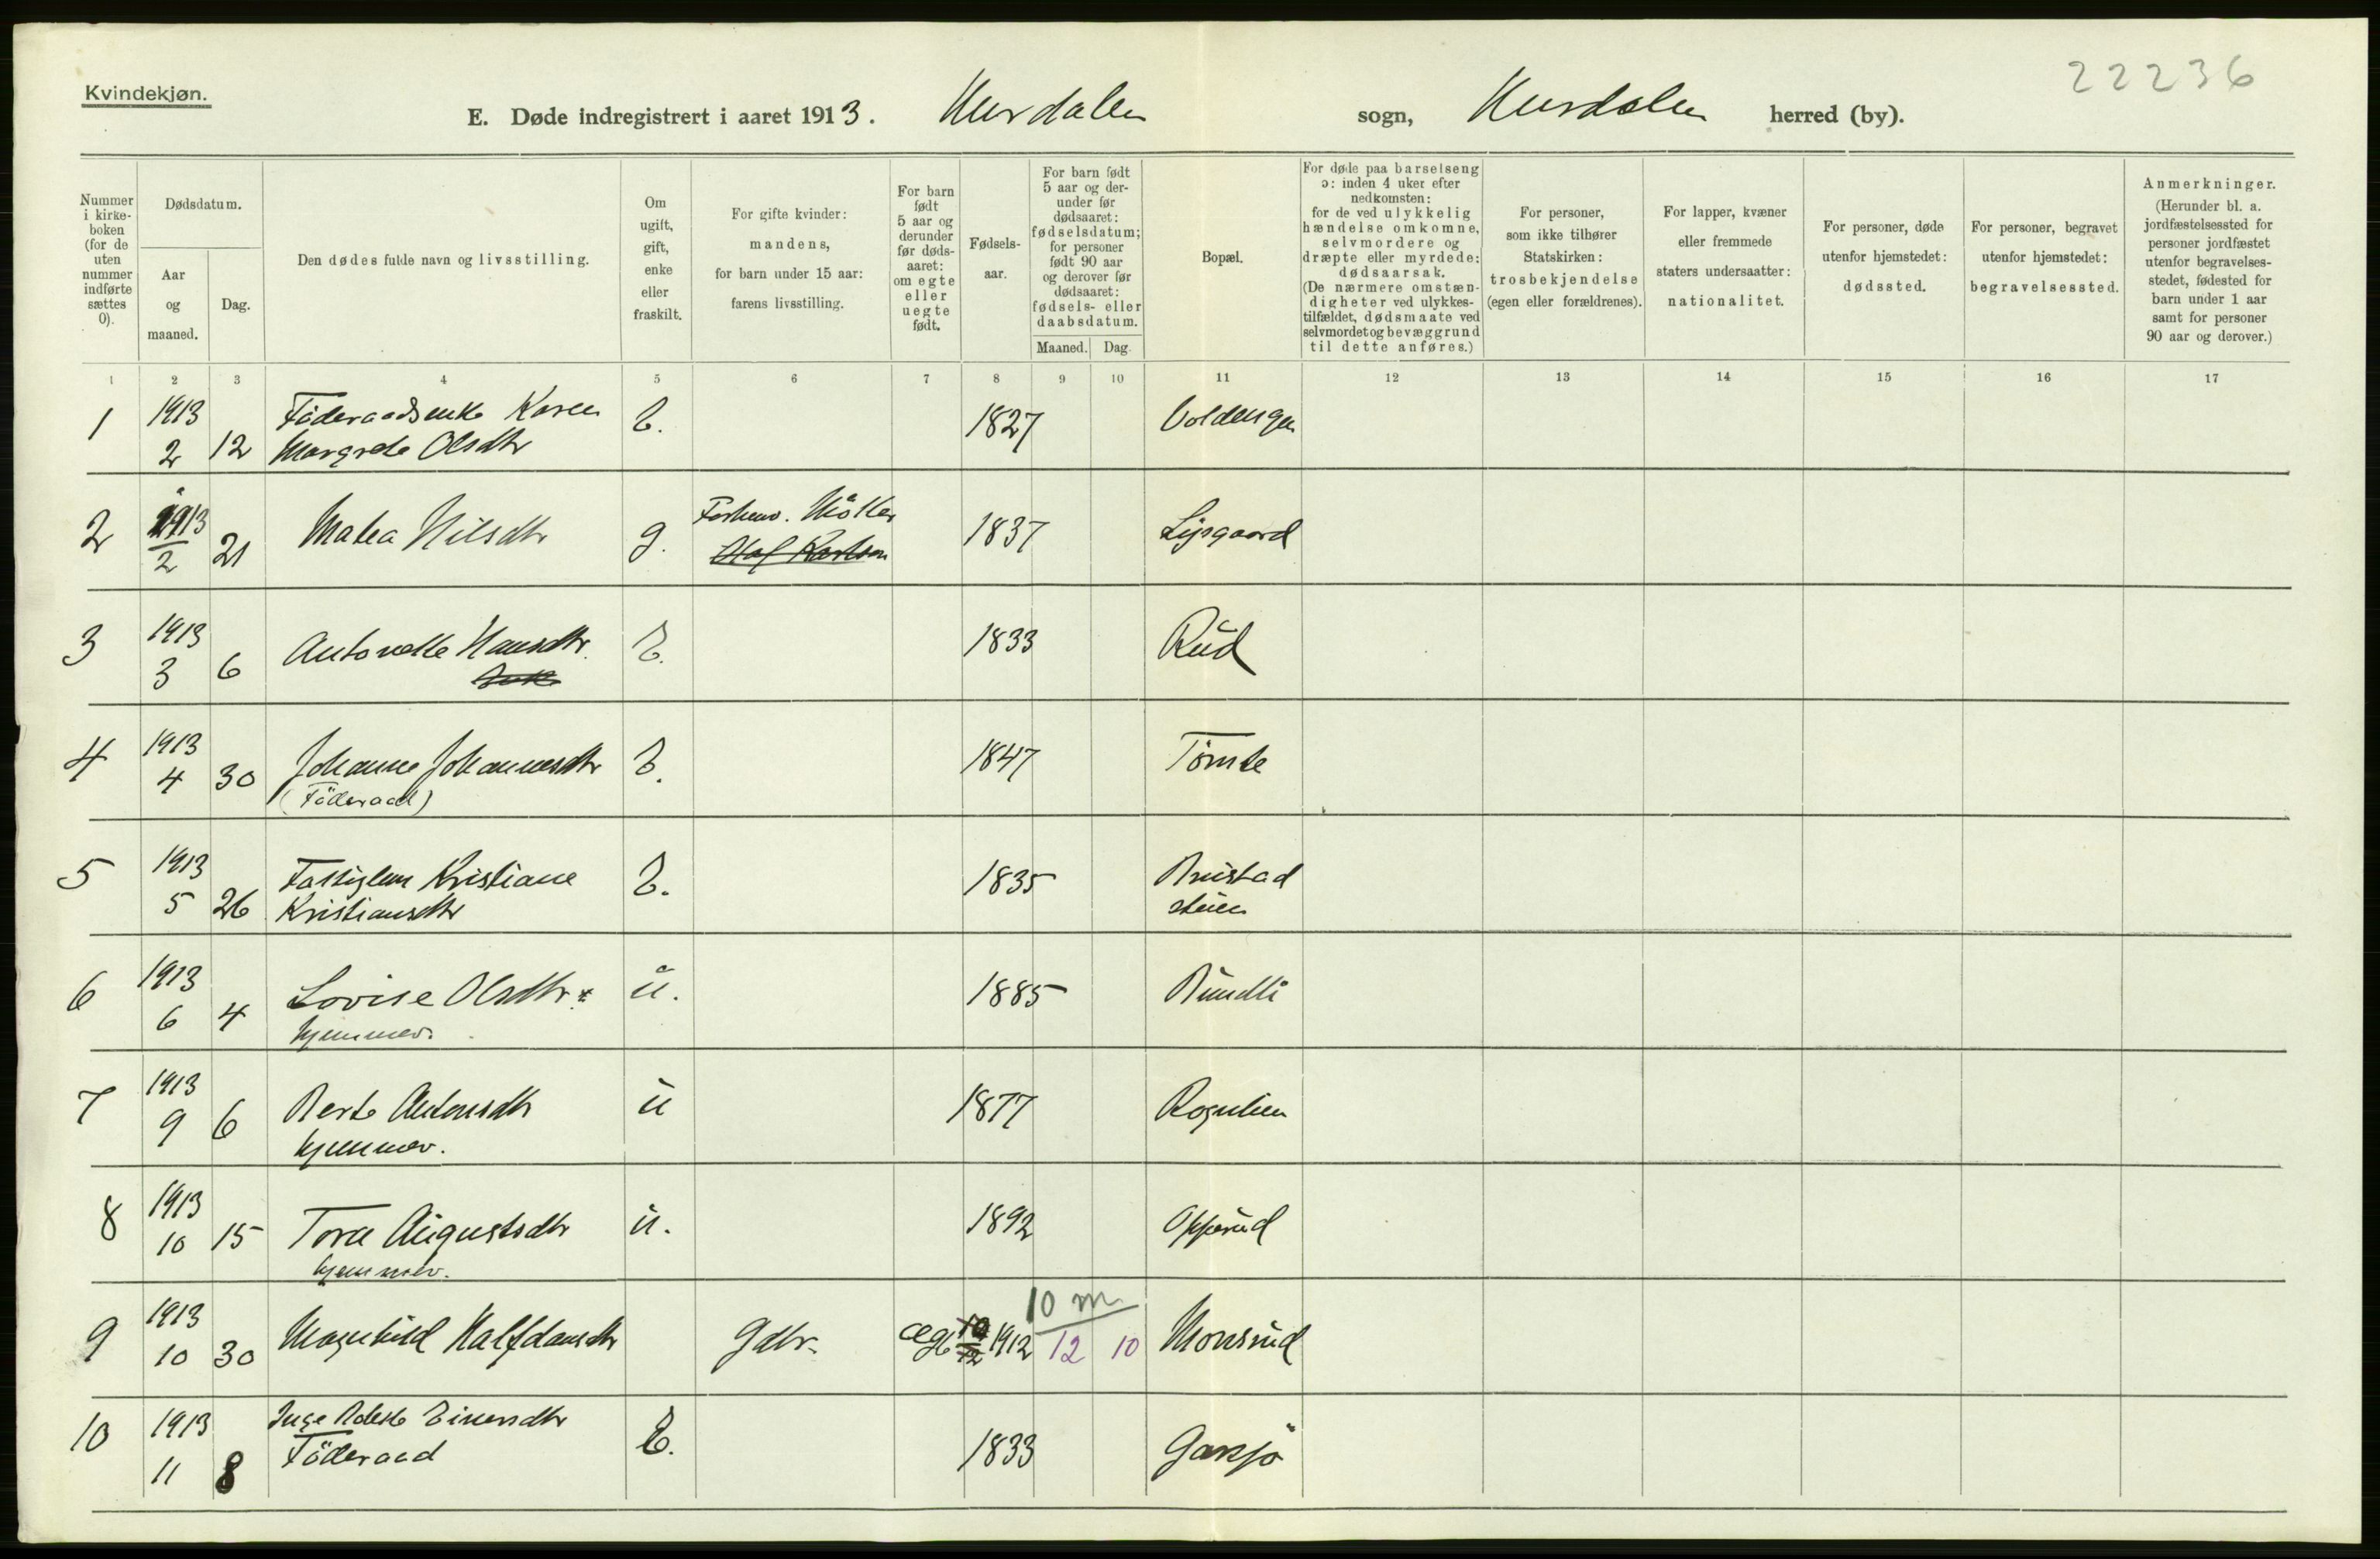 22236
Kvindekjøn.
E. Døde indregistrert i aaret 1913. Hurdalen sogn, Hurdalen herred (by).
Nummer i kirkeboken (for de uten nummer indførte sættes 0).
Dødsdatum.
Aar og maaned.
Dag.
Den dødes fulde navn og livsstilling.
Om ugift, gift, enke eller fraskilt.
For gifte kvinder: mandens, for barn under 15 aar: farens livsstilling.
For barn født 5 aar og derunder før dødsaaret: om egte eller uegte født.
Fødselsaar.
For barn født 5 aar og derunder før dødsaaret: fødselsdatum; for personer født 90 aar og derover før dødsaaret: fødsels- eller daabsdatum.
Maaned. Dag.
Bopæl.
For døde paa barselseng ɔ: inden 4 uker efter nedkomsten: for de ved ulykkelig hændelse omkomne, selvmordere og dræpte eller myrdede: dødsaarsak. (De nærmere omstændigheter ved ulykkestilfældet, dødsmaate ved selvmordet og bevæggrund til dette anføres.)
For personer, som ikke tilhører Statskirken: trosbekjendelse (egen eller forældrenes).
For lapper, kvæner eller fremmede staters undersaatter: nationalitet.
For personer, døde utenfor hjemstedet: dødssted.
For personer, begravet utenfor hjemstedet: begravelsessted.
Anmerkninger. (Herunder bl. a. jordfæstelsessted for personer jordfæstet utenfor begravelsesstedet, fødested for barn under 1 aar samt for personer 90 aar og derover.)
1 2 3 4 5 6 7 8 9 10 11 12 13 14 15 16 17
1 1913 Föderaadsenke Karen E. 1827 Voldengen
2 12 Margrete Olsdtr
2 1913 Matea Nilsdtr g. Forhenv. Möller 1837 Lysgaard
2 21 Olaf Karlson
3 1913 Antonette Hansdtr. E. 1833 Rud
3 6
4 1913 Johanne Johannesdtr E. 1847 Tömte
4 30 (Föderaad)
5 1913 Fattiglem Kristiane E. 1835 Brustad
5 26 Kristiansdtr
6 1913 Lovise Olsdtr. u. 1885 Rundli
6 4 hjemmev.
7 1913 Berte Antonsdtr u 1877 Rognlien
9 6 hjemmev.
8 1913 Tora Augustsdtr u. 1892 Opperud
10 15 hjemmev.
10 m
9 1913 Magnhild Halfdansdtr Gdbr. ægte 10/12 1912 12 10 Monsrud
10 30
10 1913 Inge Einersdtr E. 1833 Garsjö
11 8 Föderaad